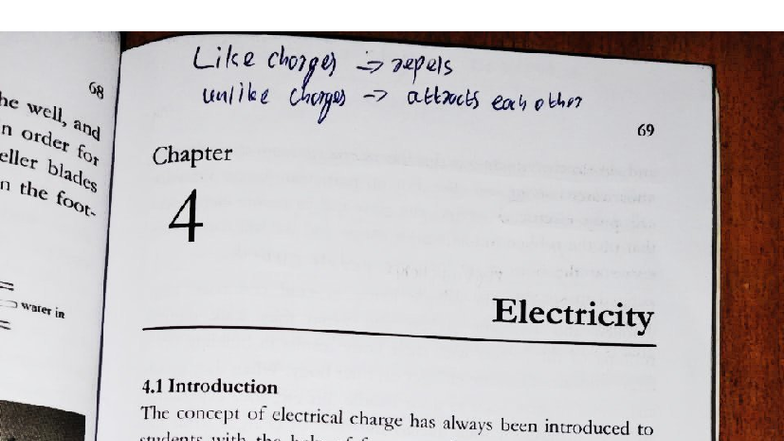 68
he well, and
n order for
eller blades
n the foot-
water in
Like charges -> repels
unlike charges -> attracts each other
69
Chapter
4
Electricity
4.1 Introduction
The concept of electrical charge has always been introduced to
students with the help of